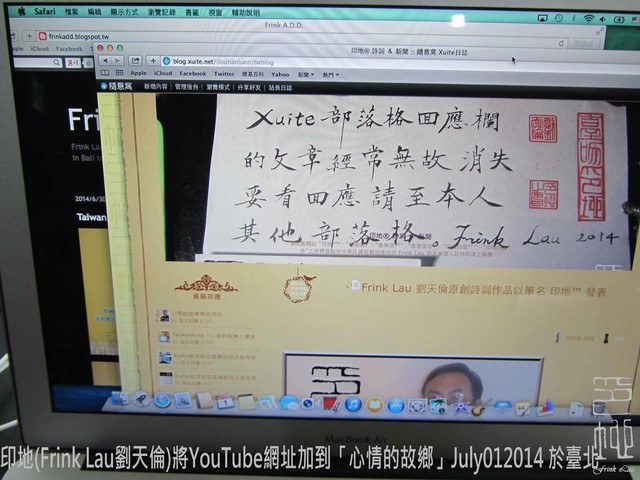 Safari 檔案 編輯 顯示方式 瀏覽記錄 書籤 視窗 輔助說明
Frink A.D.D.
frinkadd.blogspot.tw
印地® 詩詞 & 新聞 :: 隨意窩 Xuite日誌
blog.xuite.net/lioutianluen/twblog
Apple iCloud Facebook
Apple iCloud Facebook Twitter 維基百科 Yahoo 新聞 熱門
隨意窩 新增內容 管理後台 瀏覽模式 分享好友 站長日誌
Frink Lau
in Bali to
2014/6/30
Taiwan
Xuite 部落格回應欄
的文章經常無故消失
要看回應請至本人
其他部落格。Frink Lau 2014
最新回應
Frink Lau 劉天倫原創詩詞作品以筆名 印地™ 發表
MacBook Air
印地(Frink Lau劉天倫)將YouTube網址加到「心情的故鄉」July012014 於臺北
Frink Lau